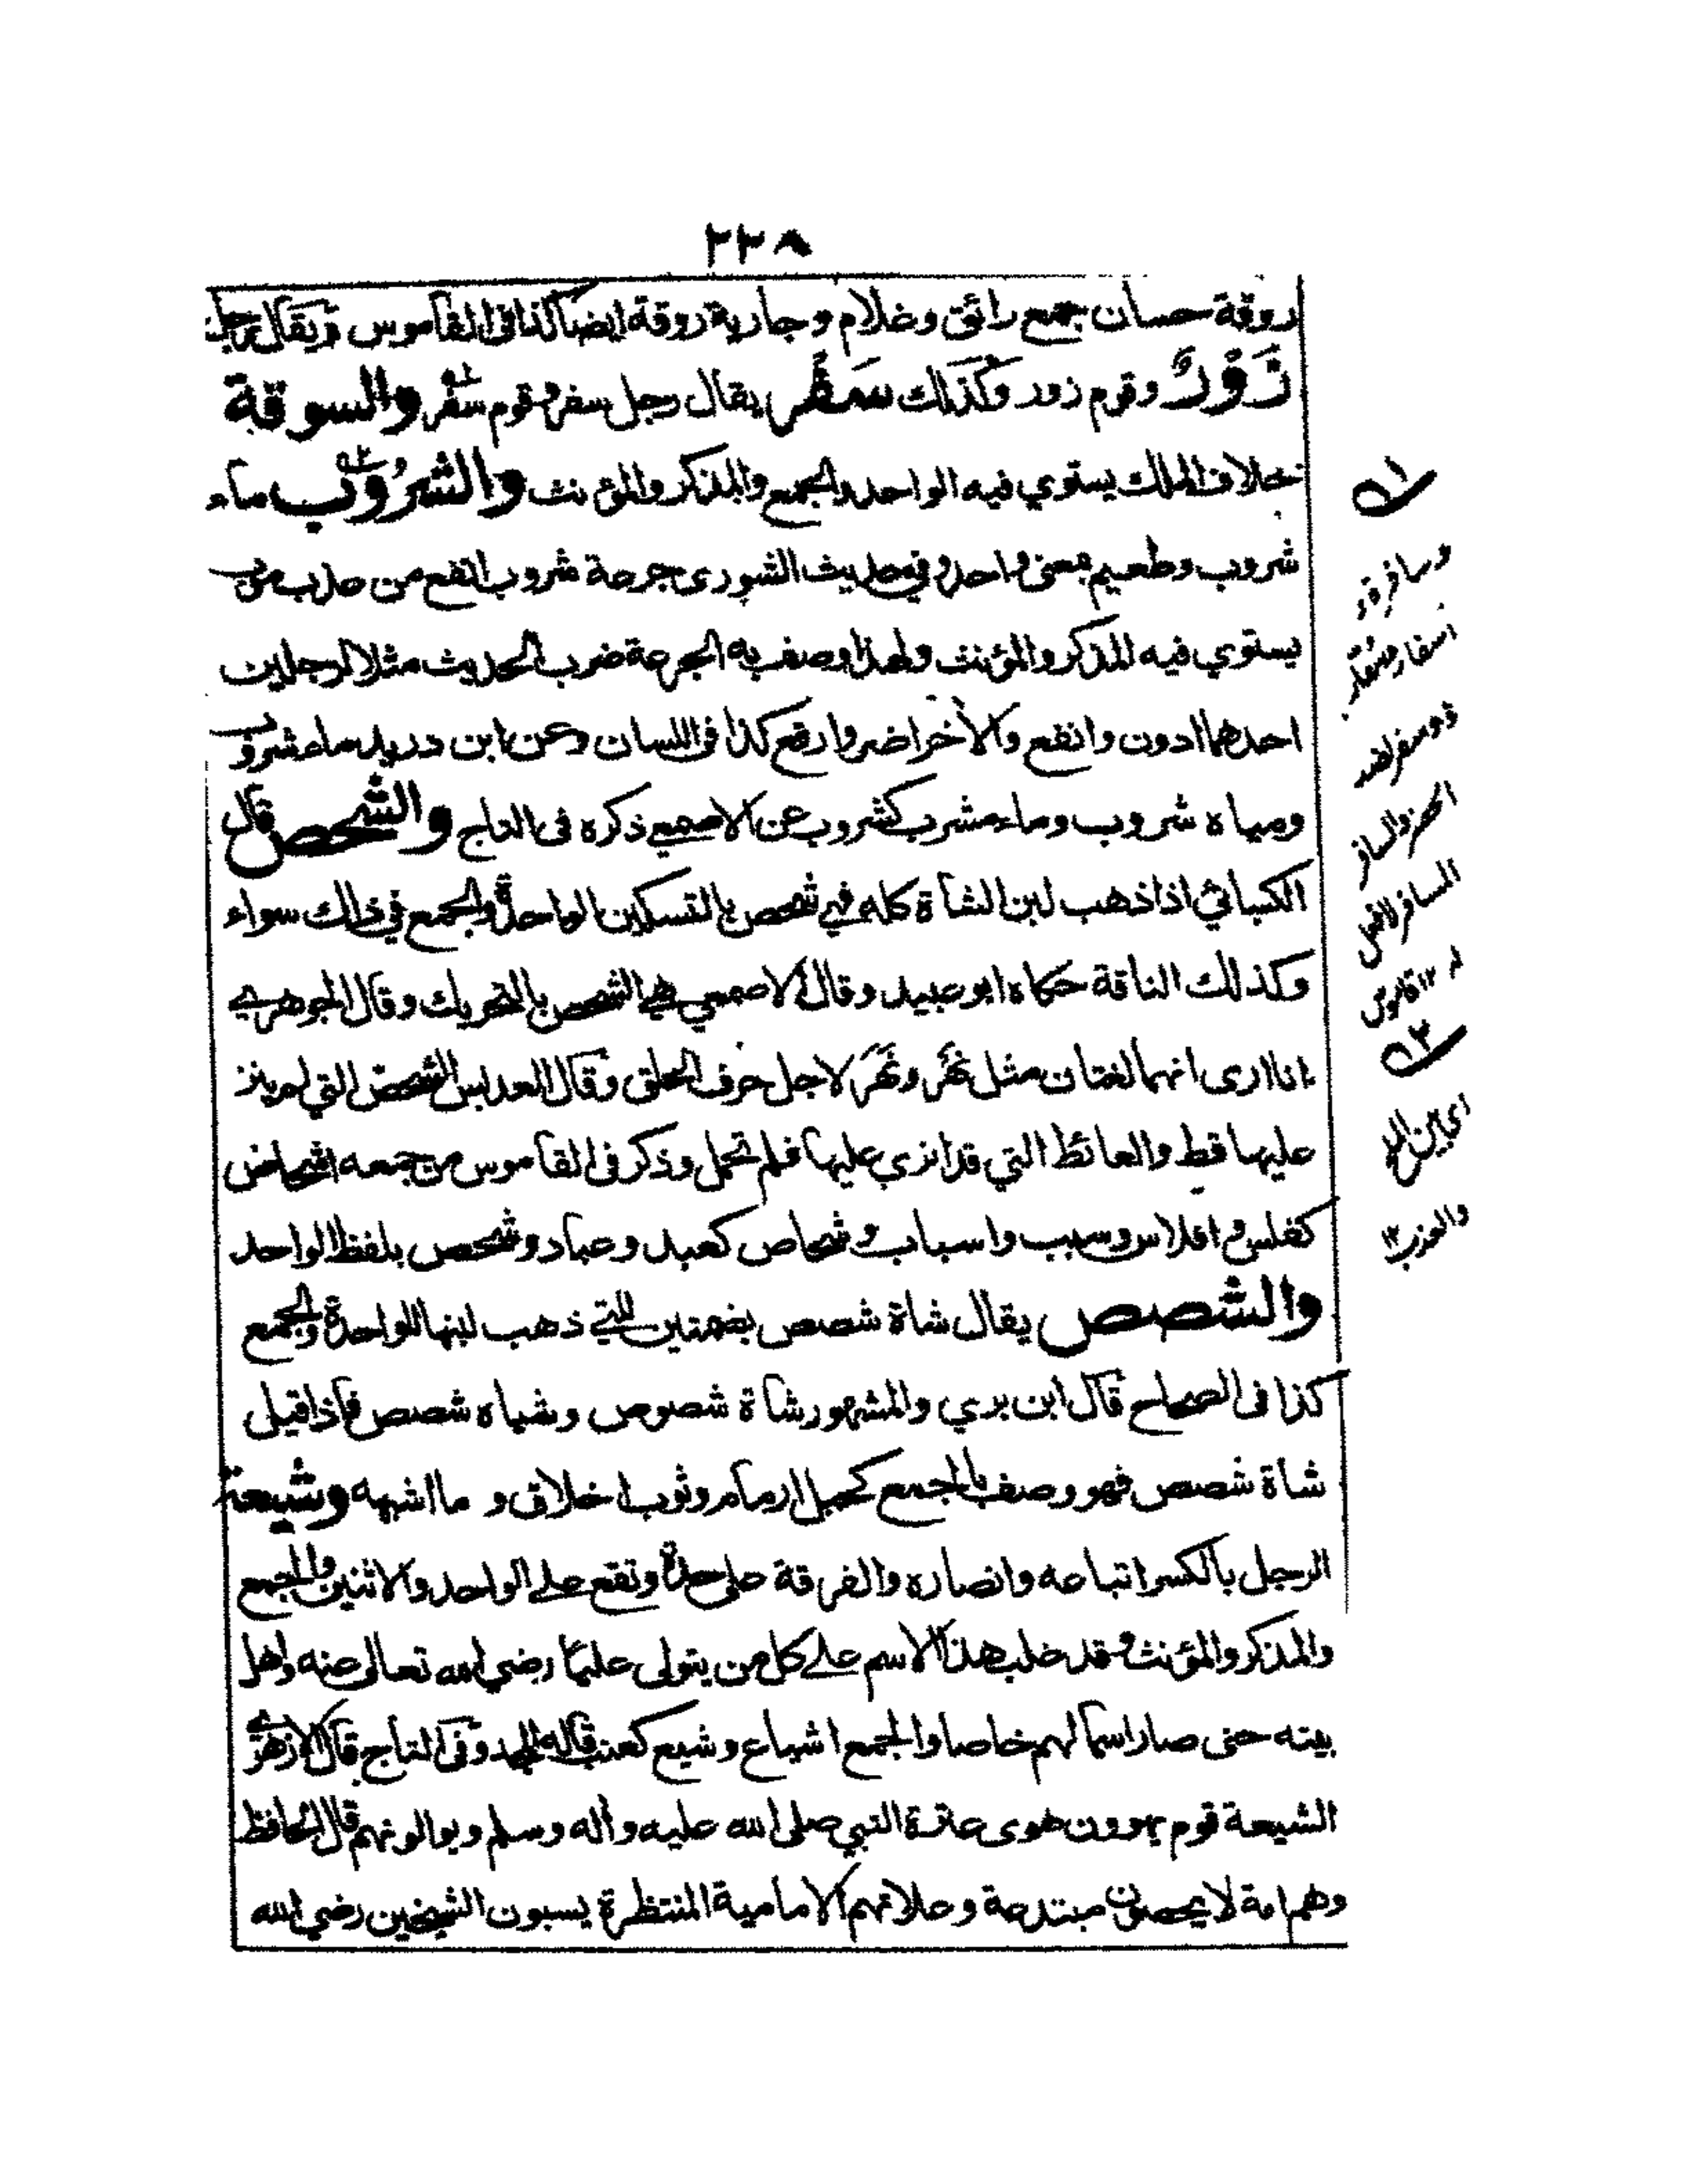 ٢٢٨
روقة حسان جمع رائق وغلام وجارية روقة ايضا كذا في القاموس ويقال رجل
زَوْرٌ وقوم زور وكذلك سَفْر يقال رجل سفر وقوم سفر والسوقة
خلاف الملك يستوي فيه الواحد والجمع والمذكر والمؤنث والشَرُوْب ماء
شروب وطعيم بمعنى واحد وفي حديث الشورى جرعة شروب انفع من عذب موب
يستوي فيه المذكر والمؤنث ولهذا وصف به الجرعة ضرب الحديث مثلا لرجلين
احدهما ادون وانفع والاخر اضر وارفع كذا في اللسان وعن ابن دريد ماء شروب
ومياه شروب وماء مشرب كشروب عن الاصمعي ذكره في التاج والشَّحص قال
الكسائي اذا ذهب لبن الشاة كله فهي شحص بالتسكين الواحدة والجمع في ذلك سواء
وكذلك الناقة حكاه ابو عبيد وقال الاصمعي هي الشحص بالتحريك وقال الجوهري
انا ارى انهما لغتان مثل نَهْر ونَهَر لاجل حرف الحلق وقال العدبس الشحص التي لم ينز
عليها قط والعائط التي قد انزي عليها فلم تحمل وذكر في القاموس من جمعه اشحاص
كفلس وافلاس وسبب واسباب وشحاص كعبد وعباد وشحص بلفظ الواحد
والشصص يقال شاة شصص بضمتين للتي ذهب لبنها للواحدة والجمع
كذا في الصحاح قال ابن بري والمشهور شاة شصوص وشياه شصص فاذا قيل
شاة شصص فهو وصف بالجمع كحبل ارمام وثوب اخلاق و ما اشبهه وشيعة
الرجل بالكسر اتباعه وانصاره والفرقة على حدة وتقع على الواحد والاثنين والجمع
والمذكر والمؤنث وقد غلب هذا الاسم على كل من يتولى عليا رضي الله تعالى عنه واهل
بيته حتى صار اسما لهم خاصا والجمع اشياع وشيع كعنب قاله المجد وفي التاج قال الازهري
الشيعة قوم يهوون هوى عترة النبي صلى الله عليه واله وسلم ويوالونهم قال الحافظ
وهم امة لا يحصون مبتدعة وغلاتهم الامامية المنتظرة يسبون الشيخين رضي الله
١
وسافرة و
اسفار
ذو سفر لضد
الحضر والسافر
المسافر لا فعل
له ١٢ قاموس
٢
اي بين الملح
والعذب ١٢